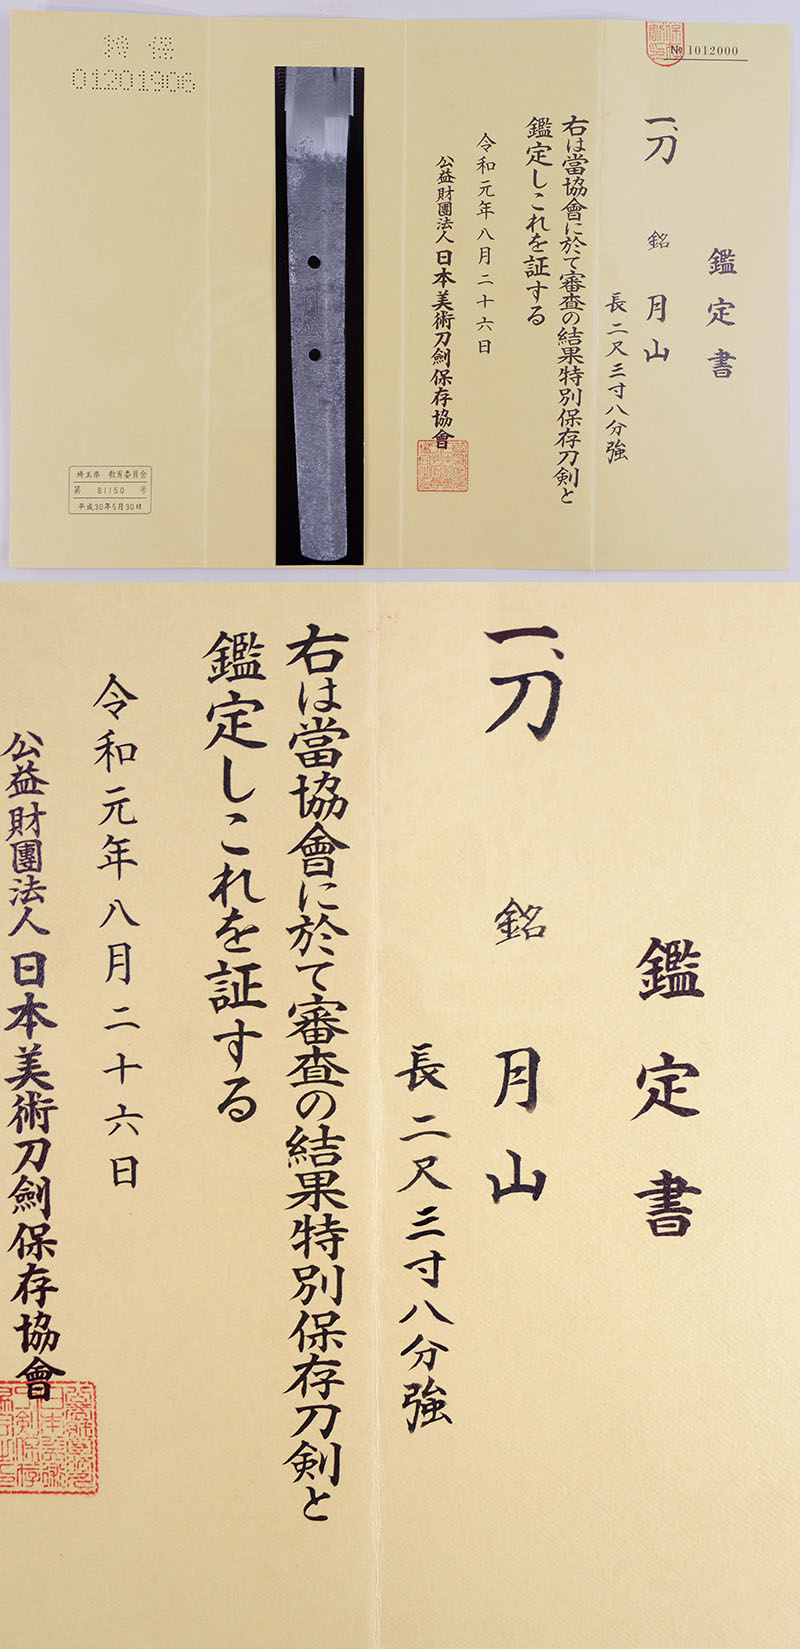 № 1012000
鑑定書
一、刀 銘 月山
長二尺三寸八分強
右は當協會に於て審査の結果特別保存刀剣と
鑑定しこれを証する
令和元年八月二十六日
公益財團法人 日本美術刀劍保存協會
特保
01201906
埼玉県 教育委員会
第 81150 号
平成30年5月30日
鑑定書
一、刀 銘 月山
長二尺三寸八分強
右は當協會に於て審査の結果特別保存刀剣と
鑑定しこれを証する
令和元年八月二十六日
公益財團法人 日本美術刀劍保存協會